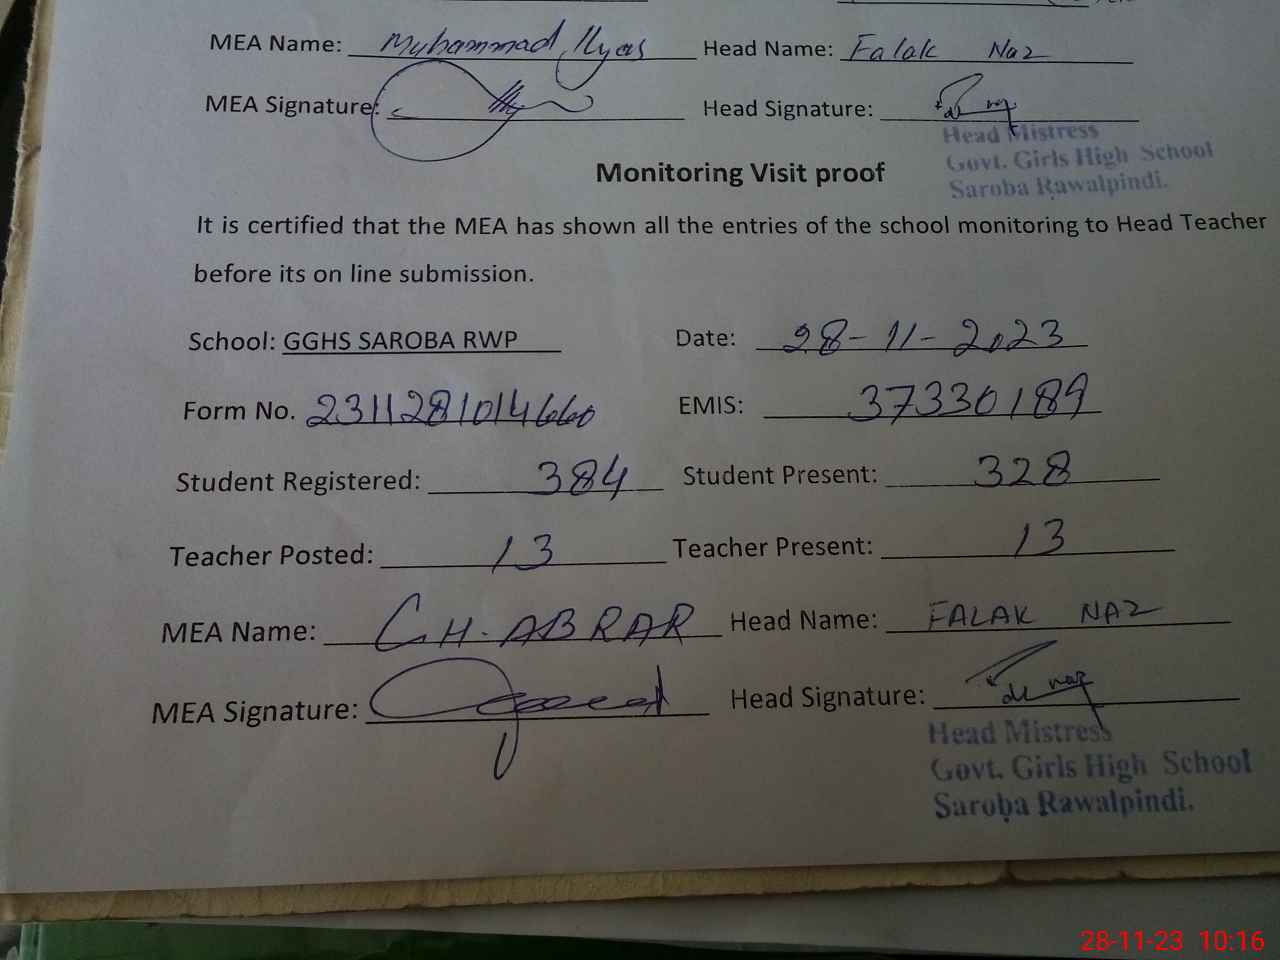 MEA Name: Muhammad Ilyas Head Name: Falak Naz
MEA Signature: Head Signature:
Head Mistress
Govt. Girls High School
Saroba Rawalpindi.
Monitoring Visit proof
It is certified that the MEA has shown all the entries of the school monitoring to Head Teacher
before its on line submission.
School: GGHS SAROBA RWP Date: 28-11-2023
Form No. 2311281014660 EMIS: 37330189
Student Registered: 384 Student Present: 328
Teacher Posted: 13 Teacher Present: 13
MEA Name: CH. ABRAR Head Name: FALAK NAZ
MEA Signature: Head Signature:
Head Mistress
Govt. Girls High School
Saroba Rawalpindi.
28-11-23 10:16